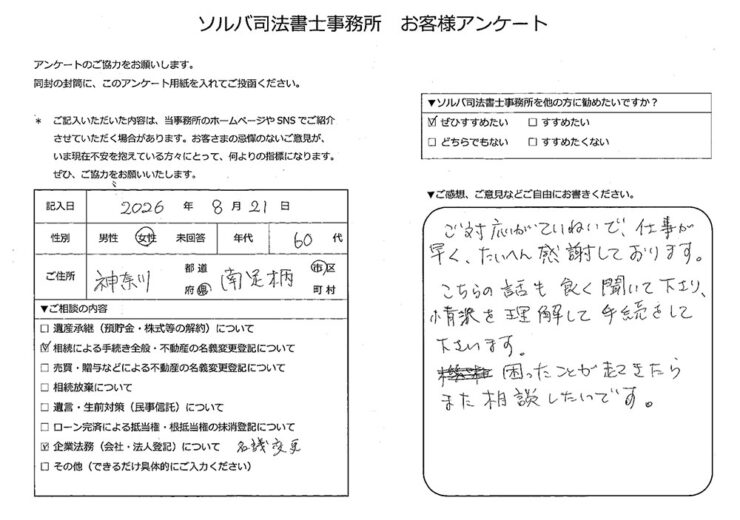 ソルバ司法書士事務所　お客様アンケート
アンケートのご協力をお願いします。
同封の封筒に、このアンケート用紙を入れてご投函ください。
* ご記入いただいた内容は、当事務所のホームページやSNSでご紹介
させていただく場合があります。お客さまの忌憚のないご意見が、
いま現在不安を抱えている方々にとって、何よりの指標になります。
ぜひ、ご協力をお願いいたします。
記入日 2026 年 8 月 21 日
性別 男性 女性 未回答 年代 60 代
ご住所 神奈川 都道府県 南足柄 市区町村
▼ご相談の内容
☐ 遺産承継（預貯金・株式等の解約）について
☑ 相続による手続き全般・不動産の名義変更登記について
☐ 売買・贈与などによる不動産の名義変更登記について
☐ 相続放棄について
☐ 遺言・生前対策（民事信託）について
☐ ローン完済による抵当権・根抵当権の抹消登記について
☑ 企業法務（会社・法人登記）について 名議変更
☐ その他（できるだけ具体的にご入力ください）
▼ソルバ司法書士事務所を他の方に勧めたいですか？
☑ ぜひすすめたい ☐ すすめたい
☐ どちらでもない ☐ すすめたくない
▼ご感想、ご意見などご自由にお書きください。
ご対応がていねいで、仕事が
早く、たいへん感謝しております。
こちらの話も良く聞いて下さり、
情況を理解して手続をして
下さいます。
困ったことが起きたら
また相談したいです。